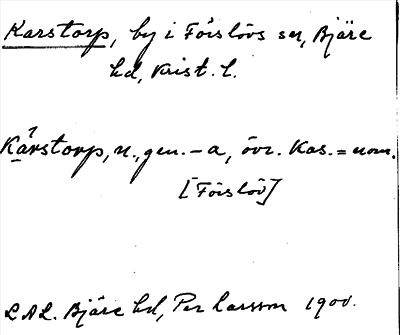 Karstorp, by i Förslövs sn, Bjäre
hd, Krist. l.
Kårstorp, n., gen. -a, övr. Kas. = nom.
[Förslöv]
LAL. Bjäre hd, Per Larsson 1900.